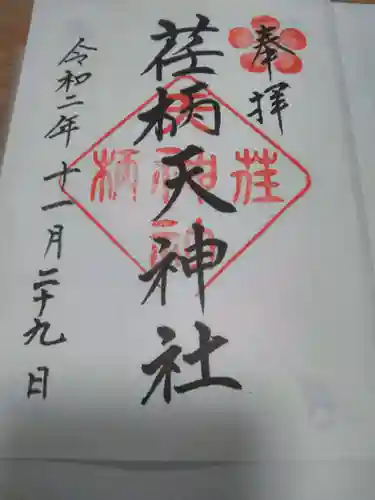 奉拝
荏柄天神社
令和二年十一月二十九日
荏
天神社
柄